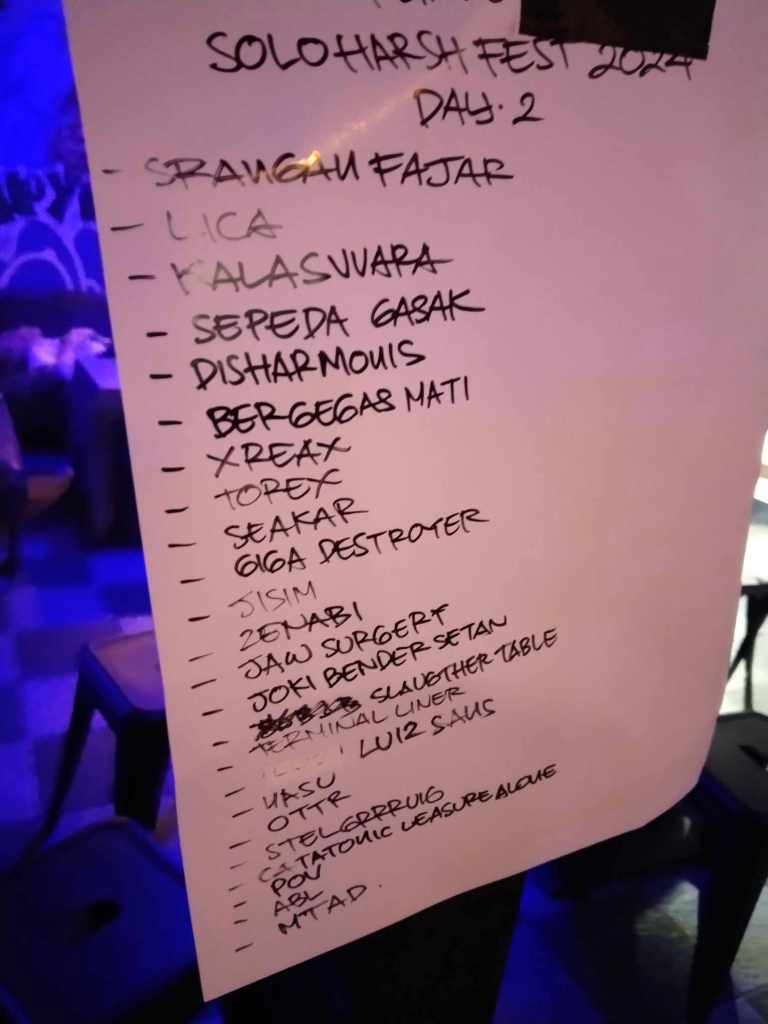 SOLO HARSH FEST 2024
DAY. 2
- SRANGAN FAJAR
- LICA
- KALASWARA
- SEPEDA GASAK
- DISHARMONIS
- BERGEGAS MATI
- XREAX
- TOREX
- SEAKAR
- GIGA DESTROYER
- JISIM
- ZENABI
- JAW SURGERY
- JOKI BENDER SETAN
- SLAUGTHER TABLE
- TERMINAL LINER
- LUIZ SANS
- UASU
- OTTR
- STELGRRRUIG
- CATATONIC LEASURE ALONE
- POV
- ABL
- MTAD.